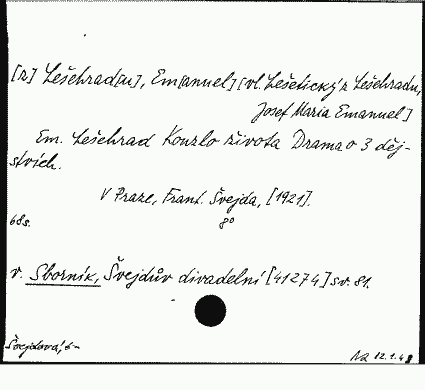 [z] Lešehrad[u], Em[anuel] [vl. Lešetický z Lešehradu,
Josef Maria Emanuel]
Em. Lešehrad Kouzlo života Drama o 3 děj-
stvích.
V Praze, Frant. Švejda, [1921].
8°
68s.
v. Sborník, Švejdův divadelní [41274] sv. 81.
Švejdová, 6-
Na 12.1.48